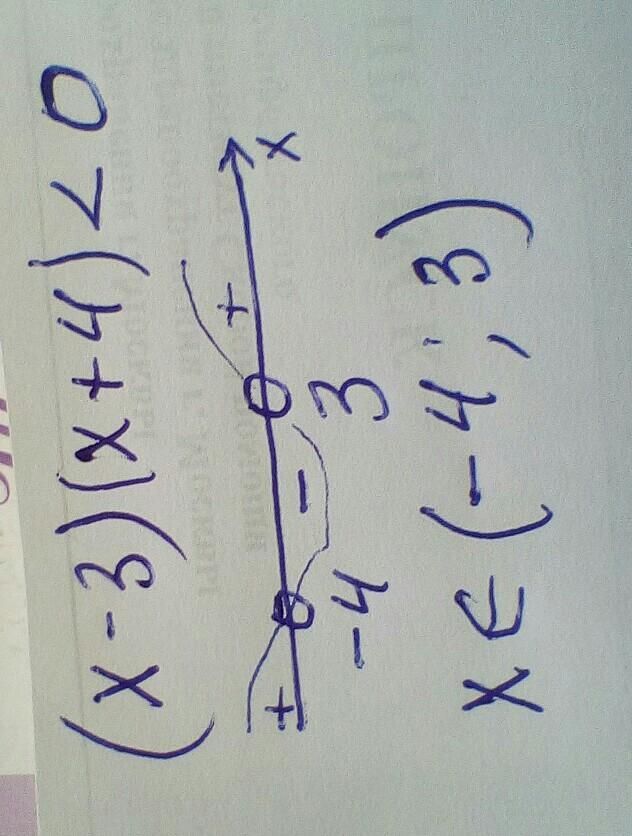 (x-3)(x+4)<0
+ - + x
-4 3
x∈(-4;3)